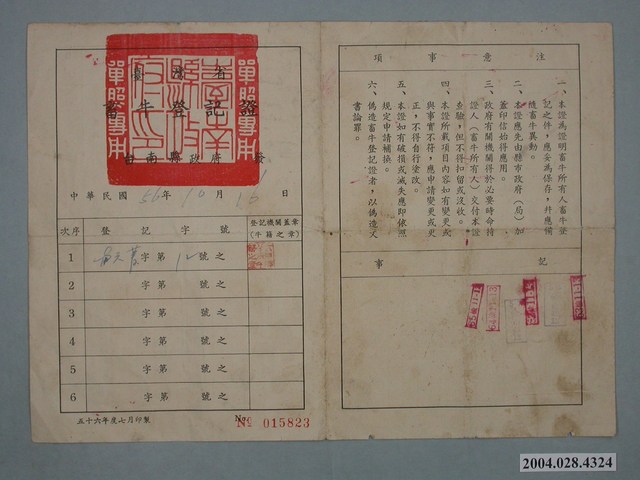 注意事項
一、本證為證明畜牛所有人畜牛登
記之件，應妥為保存，并應備
繳畜牛異動。
二、本證應先由縣市政府（局）加
蓋印信始得應用。
三、政府有關機關得於必要時命持
證人（畜牛所有人）交付本證
查驗，但不得扣留或沒收。
四、本證所載項目內容如有變更或
與事實不符，應申請變更或更
正，不得自行塗改。
五、本證如有破損或滅失應即依照
規定申請補換。
六、偽造畜牛登記證者，以偽造文
書論罪。
記事
臺灣省
畜牛登記證
臺南縣政府發
單照專用
單照專用
中華民國56年10月16日
次序 登記字號 登記機關蓋章（牛籍之章）
1 字第12號之
2 字第 號之
3 字第 號之
4 字第 號之
5 字第 號之
6 字第 號之
五十六年度七月印製
№ 015823
2004.028.4324